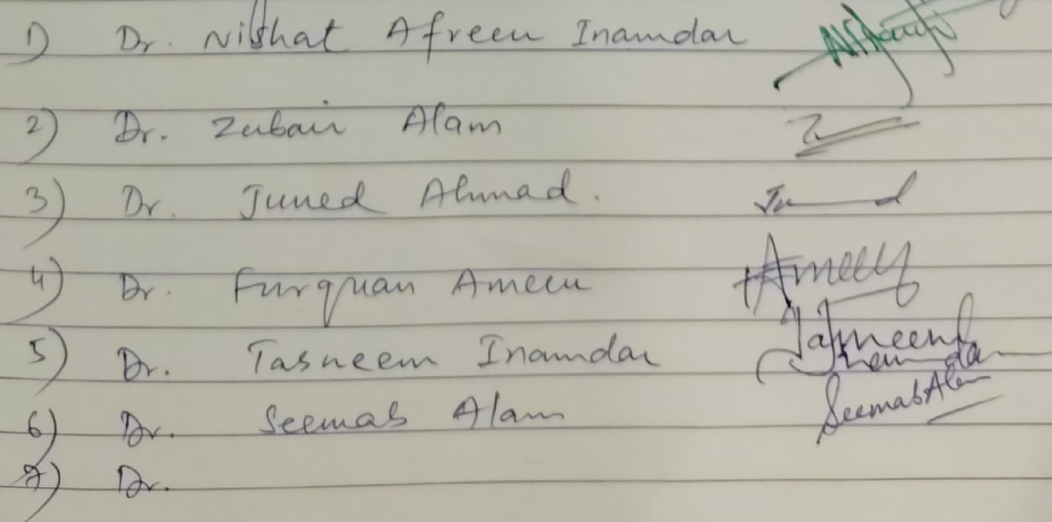 1) Dr. Nishat Afreen Inamdar
2) Dr. Zubair Alam
3) Dr. Juned Ahmad.
4) Dr. Furquan Ameen Ameen
5) Dr. Tasneem Inamdar Tasneem Inamdar
6) Dr. Seemab Alam Seemab Alam
7) Dr.